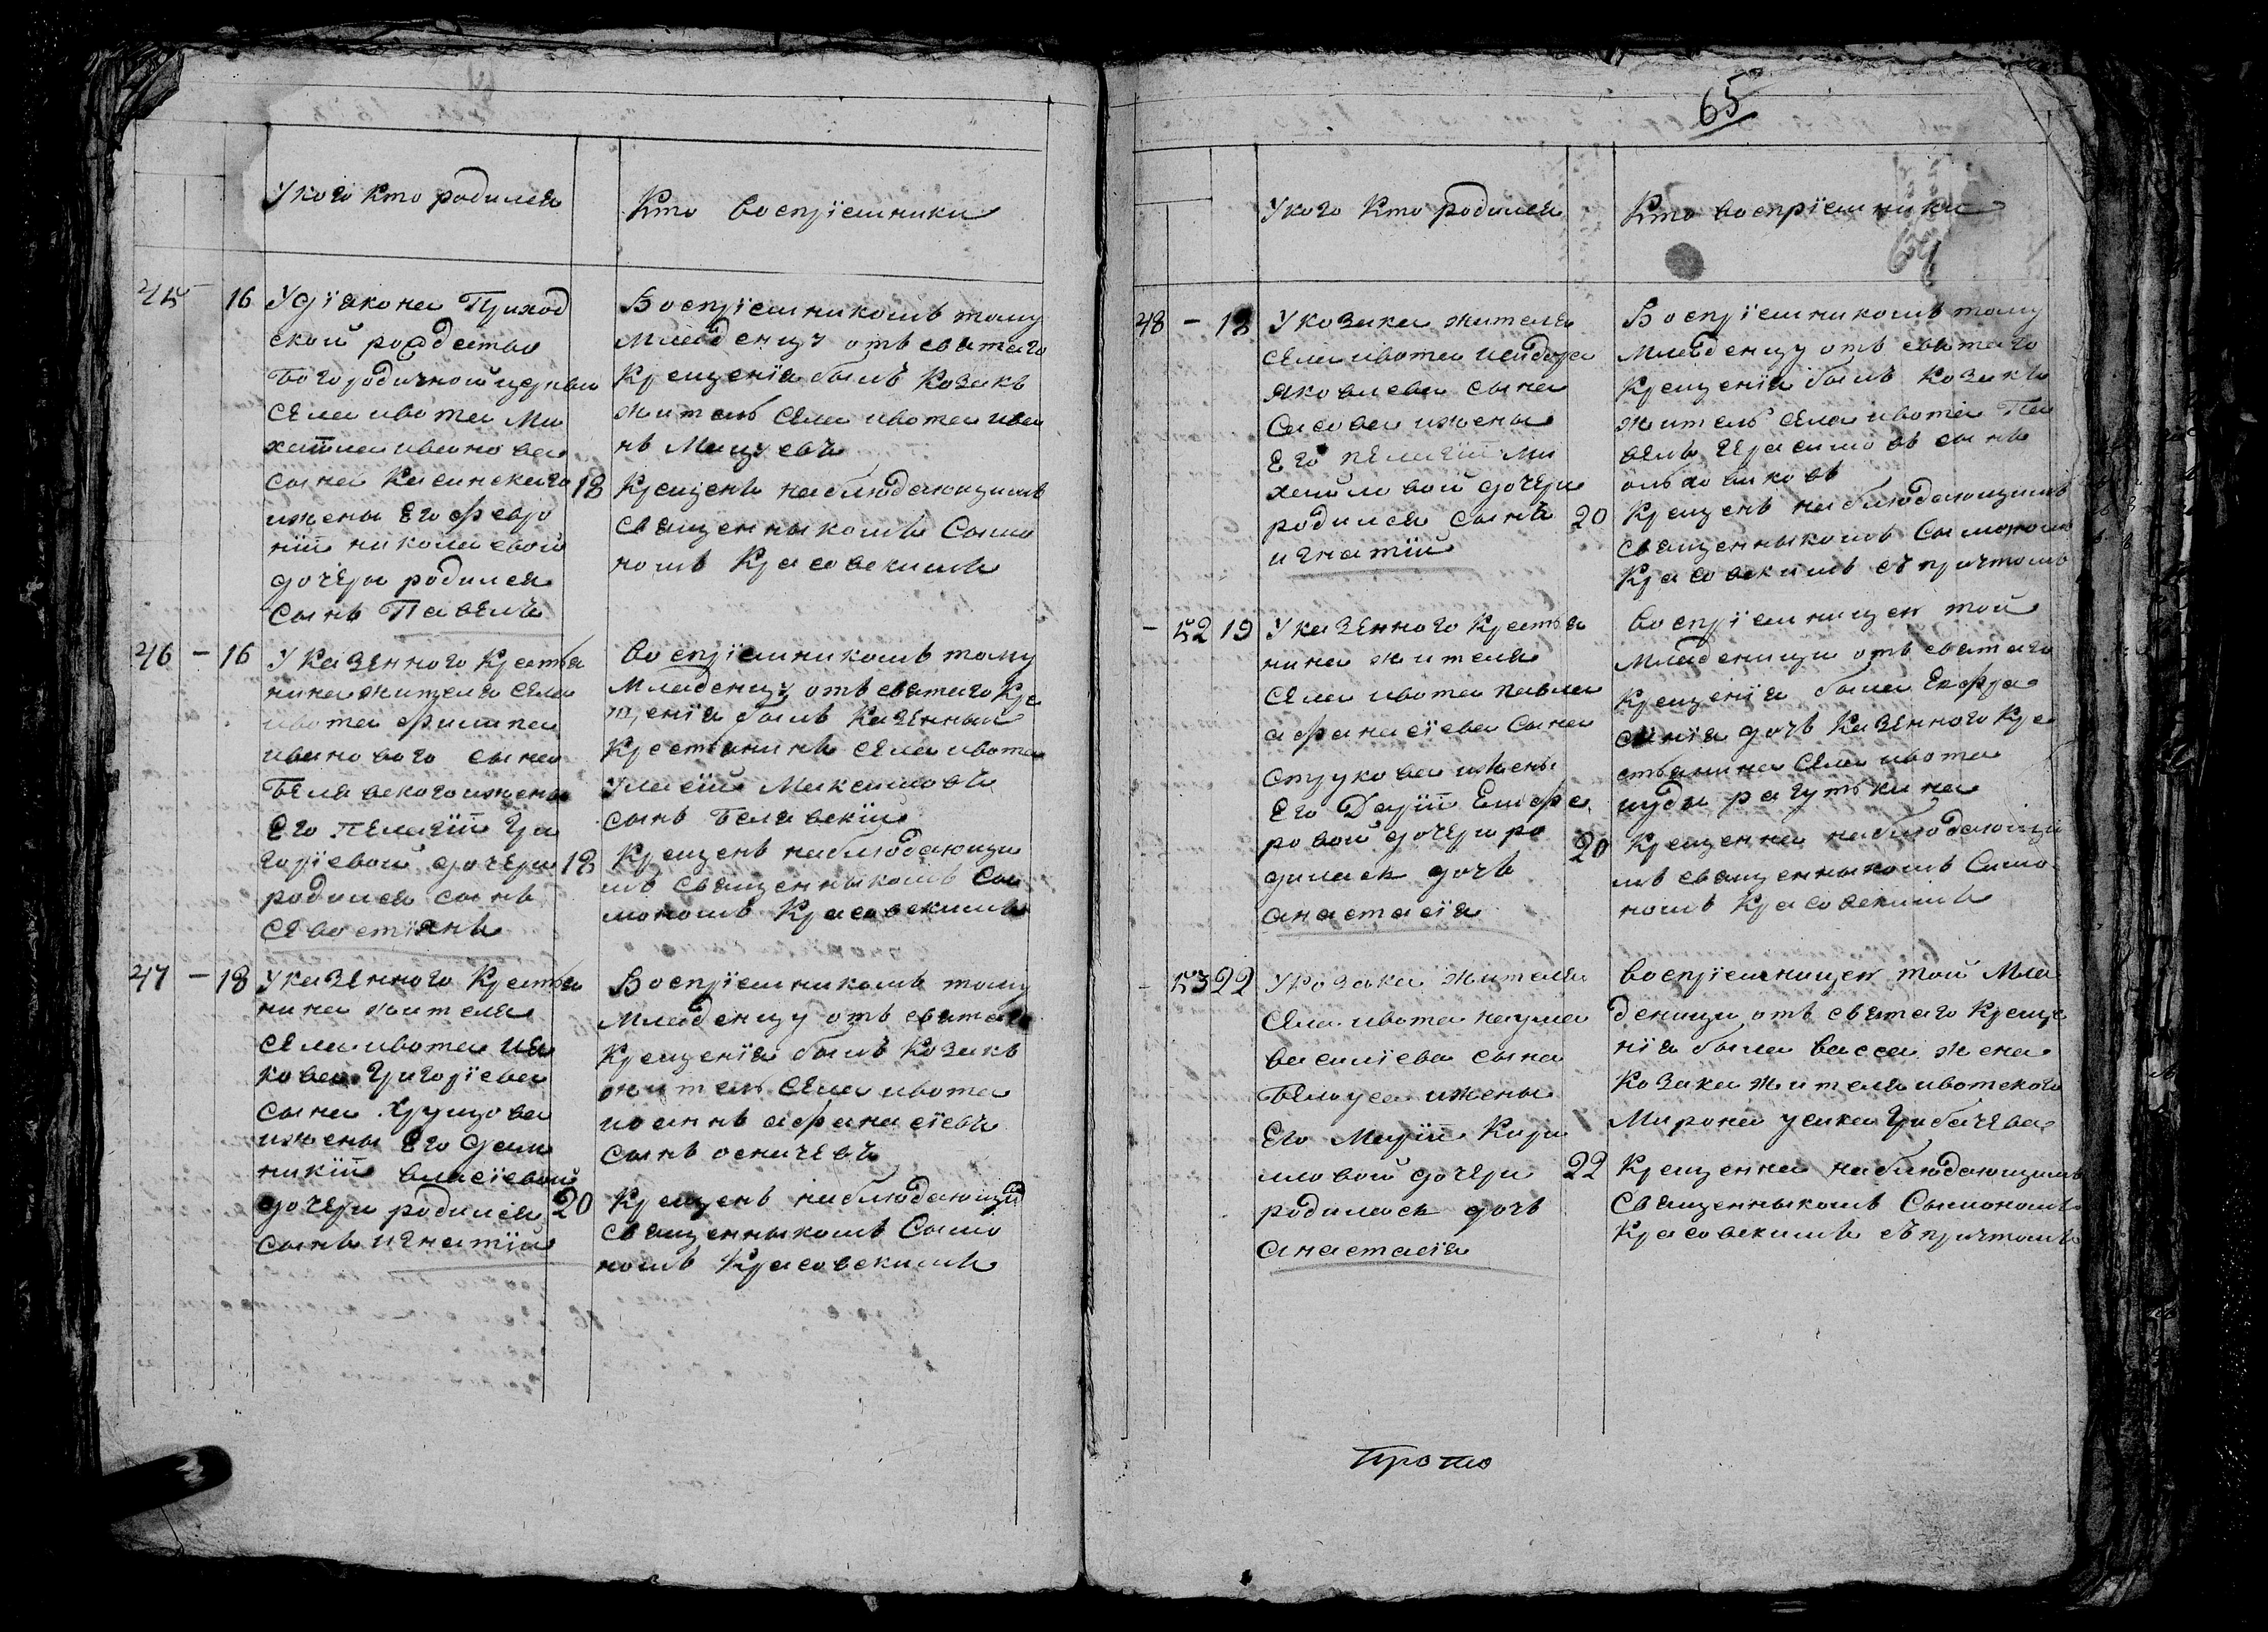 Укого Кто родился
Кто воспріемники
45 16 Удіякона Приход
ской рождество
Богородичной церкви
села ивота Ми
хаила иванова
сына Касинскаго
ижены Его февро
нїи николаевой
дочери родился
сынъ Павелъ
Воспріемникомъ тому
младенцу отъ святаго
Крещенія былъ Козакъ
житель села ивота ива
нъ Мацуевъ
18 Крещенъ наблюдающимъ
священныкомъ Симо
номъ Красовскимъ
46 – 16 Указенного Крестья
нина жителя села
ивота филипа
ивановаго сына
Белявского ижены
Его пелагїи Гри
горіевой дочери
родился сынъ
севостіянъ
воспріемникомъ тому
младенцу отъ святаго Кре
щенія былъ Казенный
Крестьянинъ села ивота
Максимовъ
сынъ Белявскій
18 Крещенъ наблюдающи
мъ священныкомъ Си
мономъ Красовскимъ
47 – 18 Указенного Крестья
нина жителя
села ивота Іа
кова Григоріева
сына Хрущова
ижены Его доми
никїи власіевой
дочери родился
сынъ игнатїи
Воспріемникомъ тому
младенцу отъ святаго
Крещенія былъ Козакъ
житель села ивота
иоаннъ афанасіевъ
сынъ осмачевъ
20 Крещенъ наблюдающи
священныкомъ Симо
номъ Красовскимъ
65
Укого Кто родился
Кто воспріемники
69
48 – 18 Укозака жителя
села ивота исидора
яковлева сына
Сасова ижены
Его пелагїи Ми
хайловой дочери
родился сынъ
игнатїи
Воспріемникомъ тому
младенцу отъ святаго
Крещенія былъ Козакъ
житель села ивота Па
велъ герасимовъ сынъ
ольховиковъ
20 Крещенъ наблюдающимъ
священныкомъ Симономъ
Красовскимъ съ причтомъ
– 52 19 Указенного Крестья
нина жителя
села ивота павла
афанасіева сына
Стукова ижены
Его Дарїи Елифе
ровой дочери ро
дилась дочъ
анастасія
воспріемницею той
младеници отъ святаго
Крещенія была Ефро
синія дочъ Казенного Кре
стьянина села ивота
иуды рагуткина
20 Крещенна наблюдающи
мъ священныкомъ Симо
номъ Красовскимъ
– 53 22 Укозака жителя
села ивота наума
василіева сына
Белоуса ижены
Его Марїи Кори
мовой дочери
родилась дочъ
анастасія
воспріемницею той мла
деници отъ святаго Креще
нія была васса жена
Козака жителя ивотского
Мирона усика Грибачева
22 Крещенна наблюдающимъ
Священныкомъ Симономъ
Красовскимъ съ причтомъ
Прото